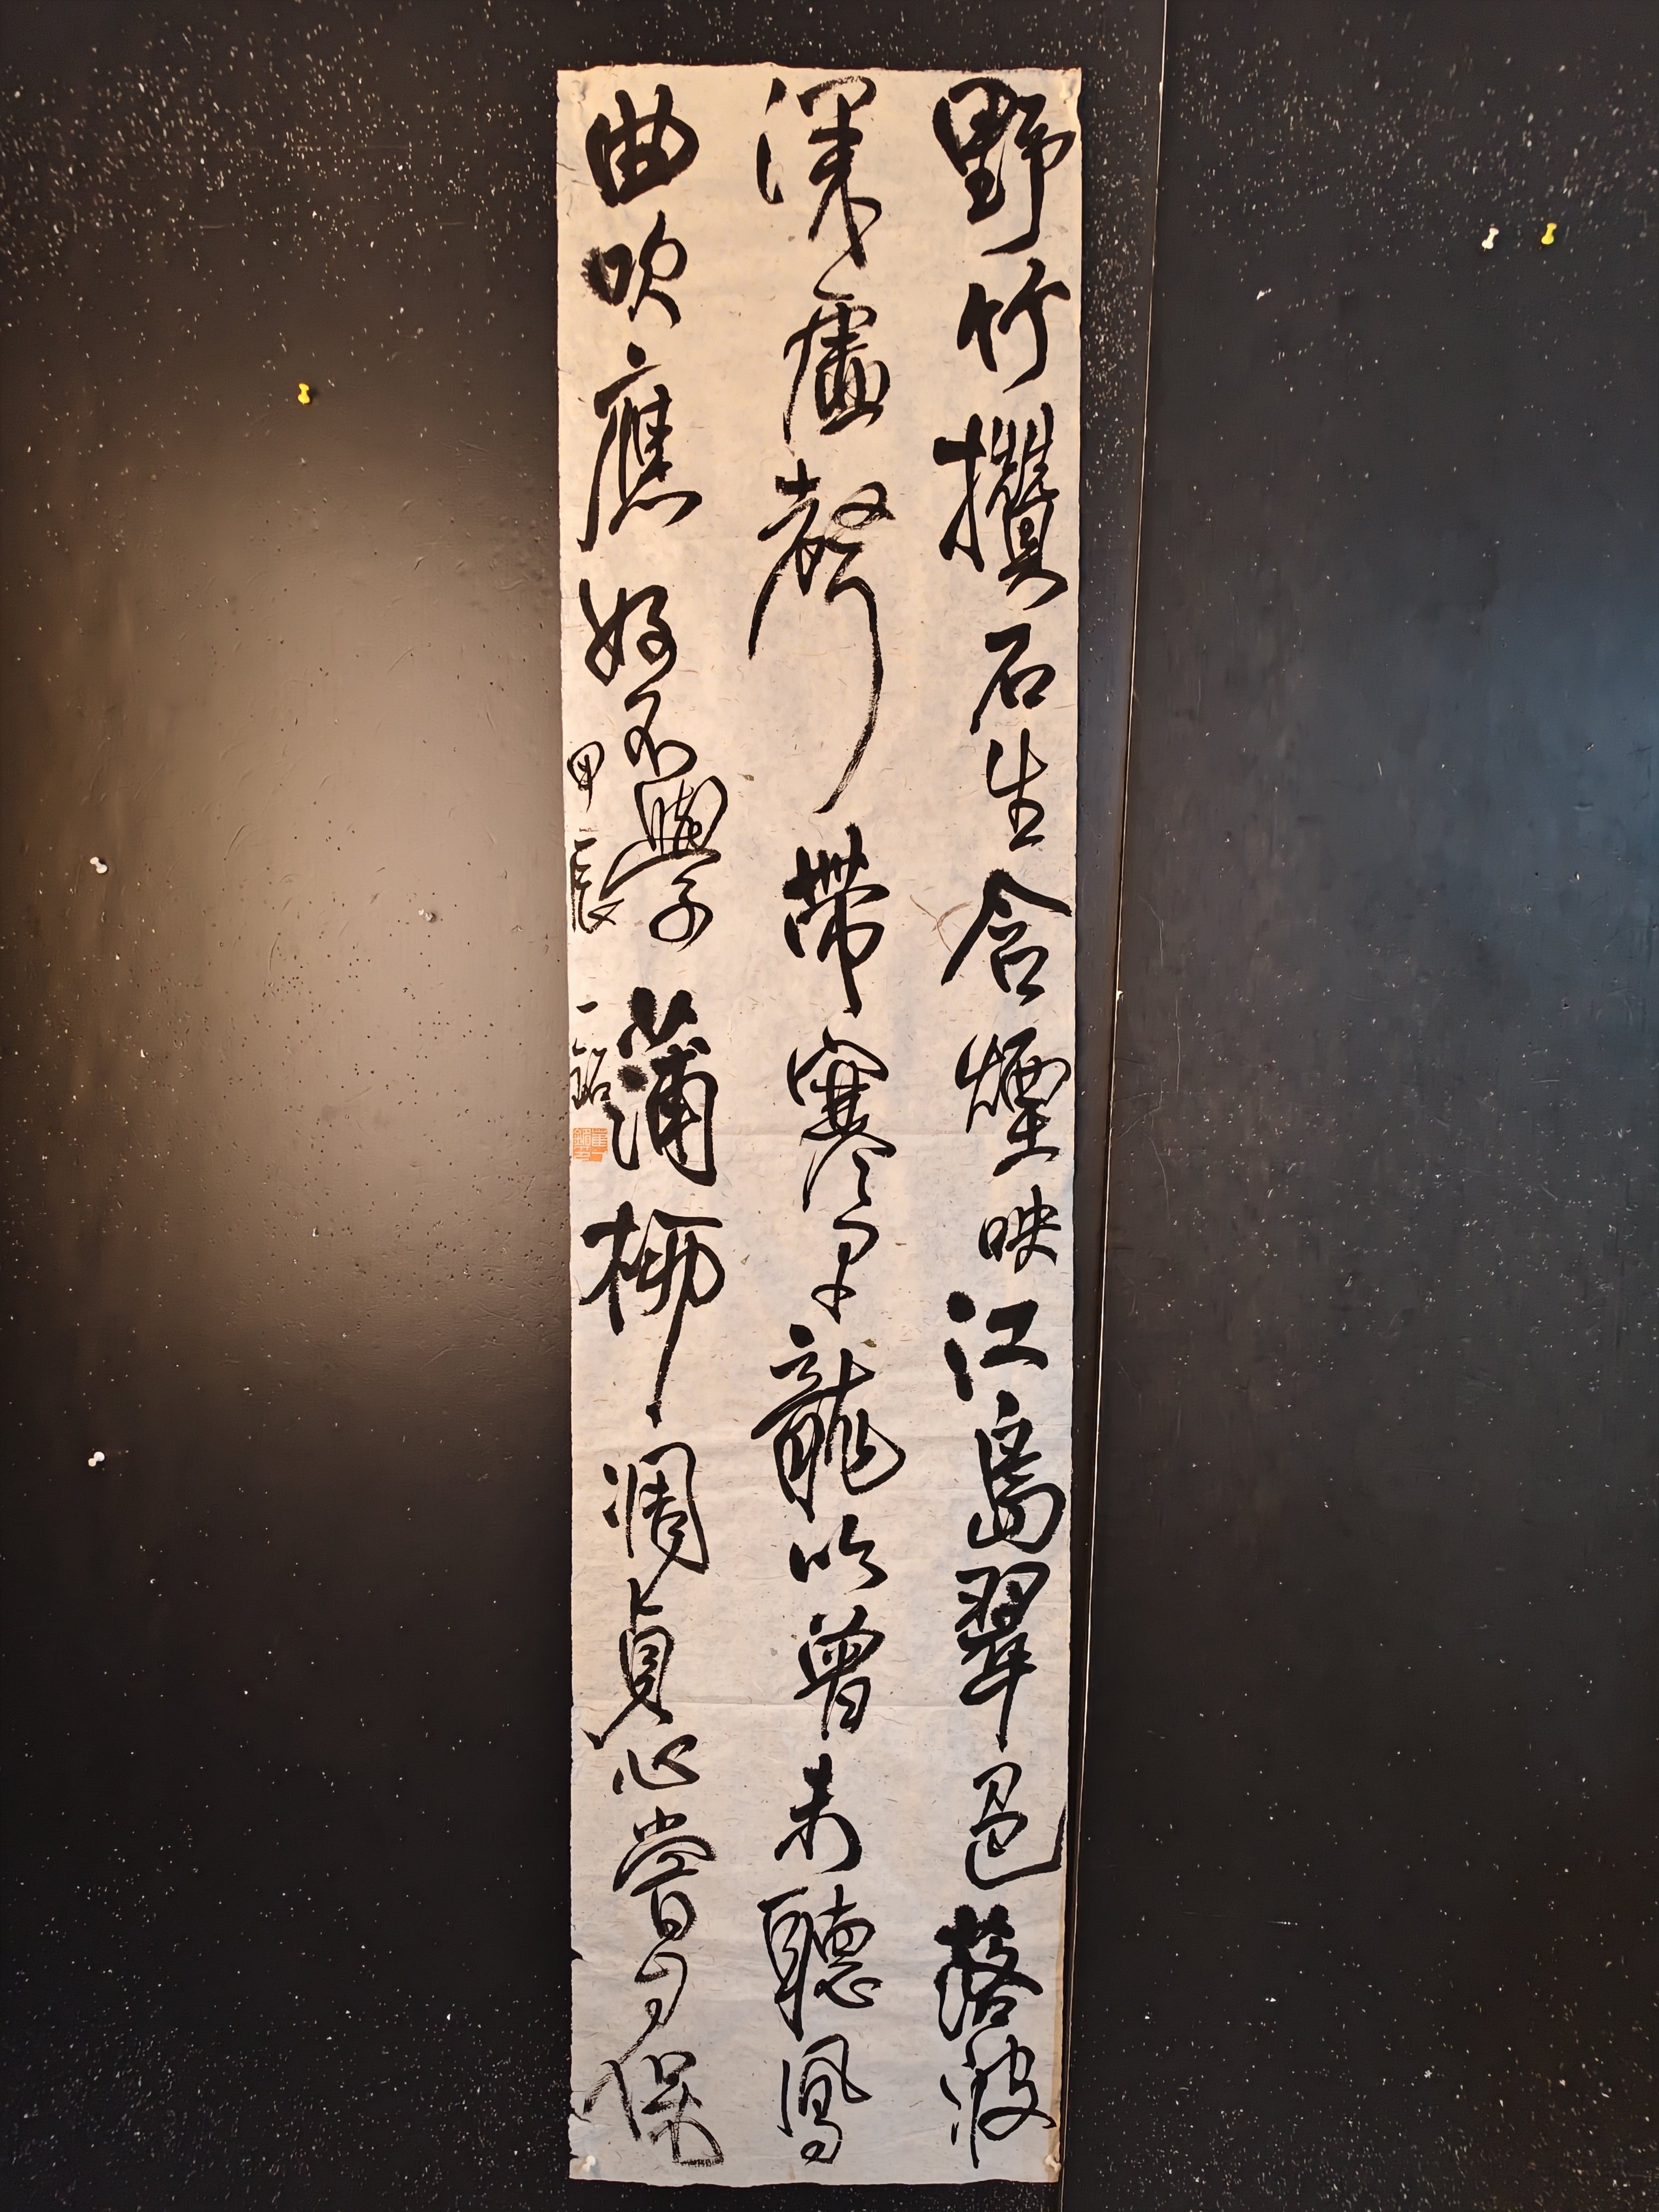 野竹攢石生含煙映江島翠色落波
深虛聲帶寒早龍吟曾未聽鳳
曲吹應好不學蒲柳凋貞心嘗自保
甲辰 一銘